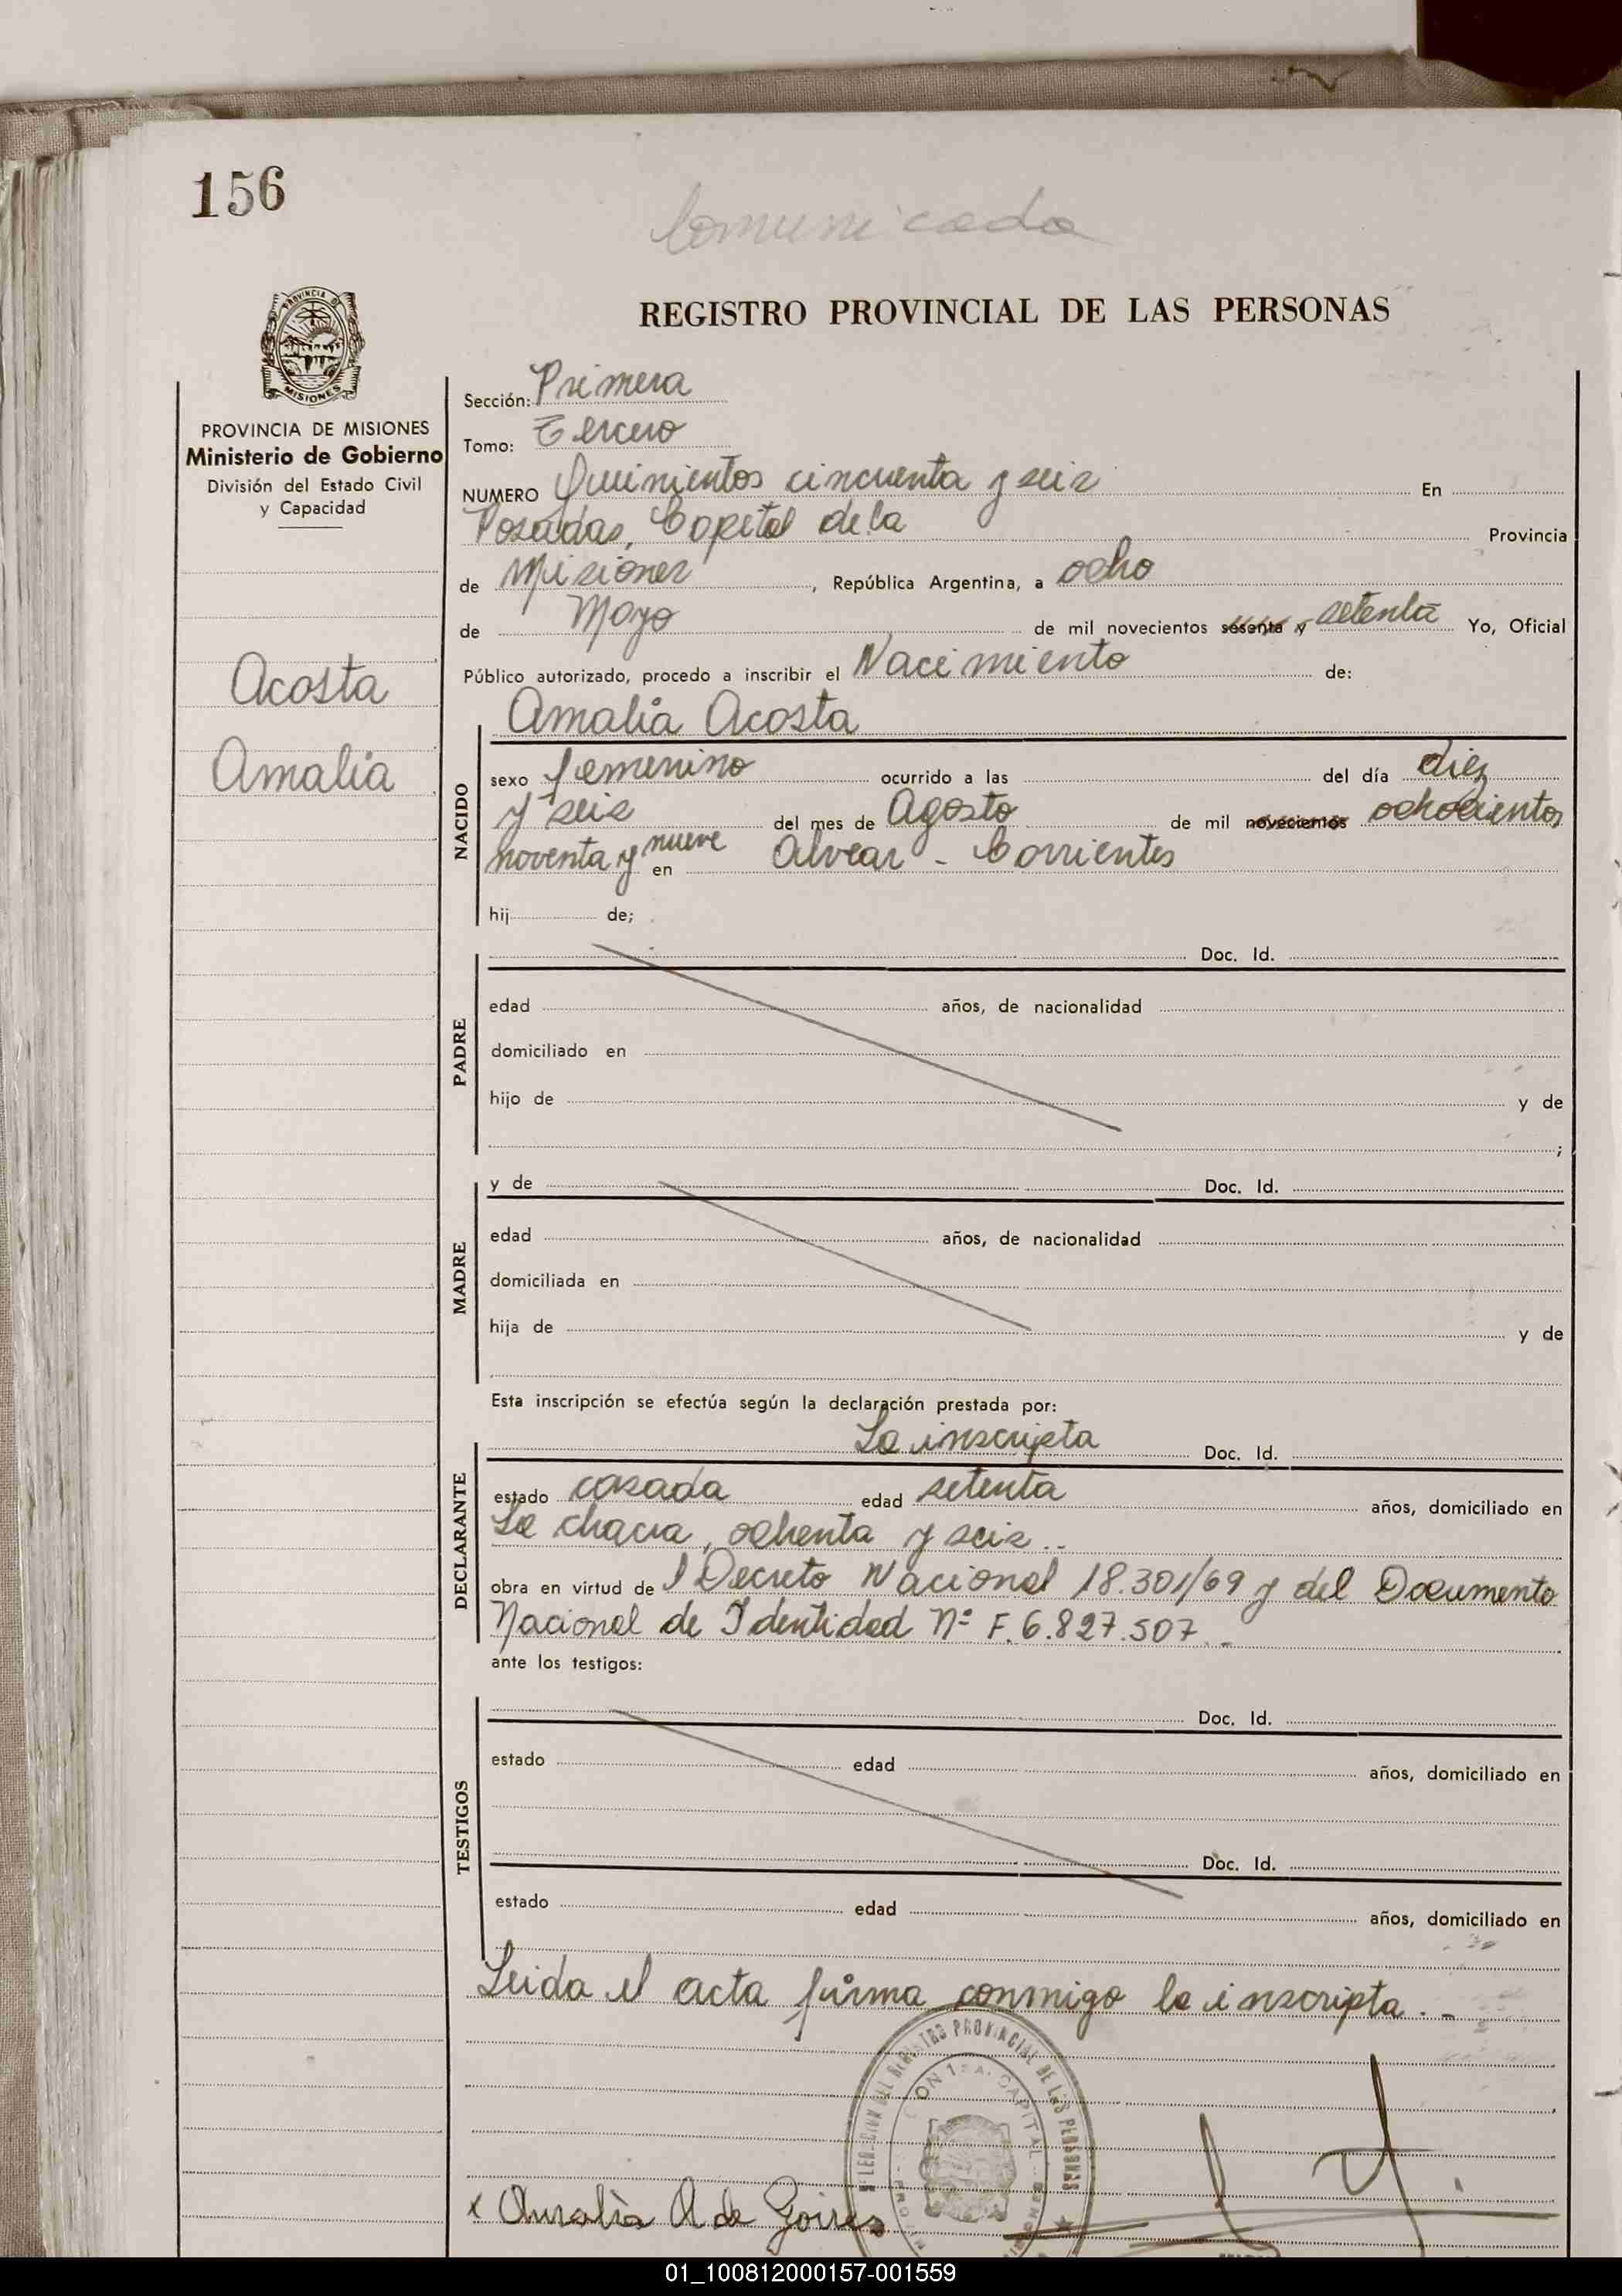 156
Comunicada
REGISTRO PROVINCIAL DE LAS PERSONAS
PROVINCIA DE MISIONES
PROVINCIA DE MISIONES
Ministerio de Gobierno
División del Estado Civil
y Capacidad
Acosta
Amalia
Sección: Primera
Tomo: Tercero
NUMERO Quinientos cincuenta y seis En
Posadas, Capital de la Provincia
de Misiones, República Argentina, a ocho
de Mayo de mil novecientos sesenta y setenta Yo, Oficial
Público autorizado, procedo a inscribir el Nacimiento de:
Amalia Acosta
NACIDO
sexo femenino ocurrido a las del día diez
y seis del mes de Agosto de mil novecientos ochocientos
noventa y nueve en Alvear - Corrientes
hij de;
PADRE
Doc. Id.
edad años, de nacionalidad
domiciliado en
hijo de y de
;
MADRE
y de Doc. Id.
edad años, de nacionalidad
domiciliada en
hija de y de
Esta inscripción se efectúa según la declaración prestada por:
DECLARANTE
La inscripta Doc. Id.
estado casada edad setenta años, domiciliado en
La chacra, ochenta y seis..
obra en virtud de l Decreto Nacional 18.301/69 y del Documento
Nacional de Identidad Nº F. 6.827.507 . -
ante los testigos:
TESTIGOS
Doc. Id.
estado edad años, domiciliado en
Doc. Id.
estado edad años, domiciliado en
Leida el acta firma conmigo la inscripta. -
REGISTRO PROVINCIAL DE LAS PERSONAS
CAPITAL
x Amalia A de Goires
01_100812000157-001559